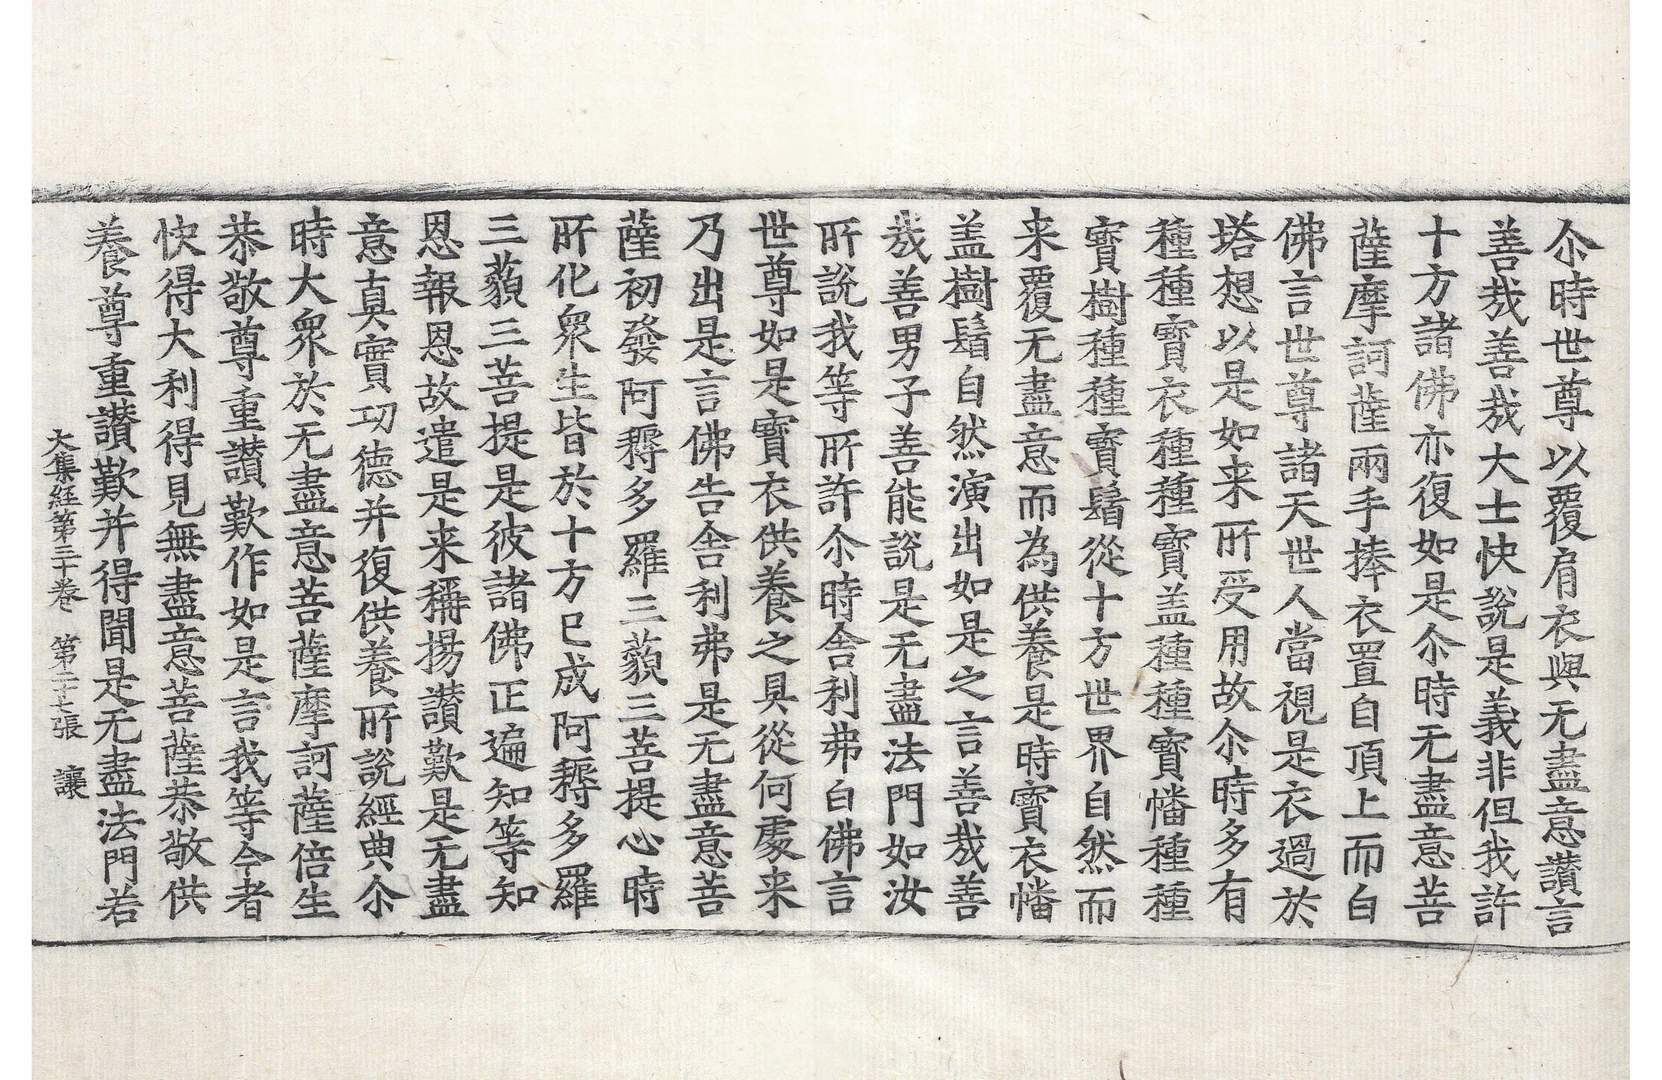 尒時世尊以覆肩衣與无盡意讚言
善㢤善㢤大士快說是義非但我許
十方諸佛亦復如是尒時无盡意菩
薩摩訶薩兩手捧衣置自頂上而白
佛言世尊諸天世人當視是衣過於
塔想以是如来所受用故尒時多有
種種寳衣種種寳盖種種寳幡種種
寳樹種種寳鬘從十方世界自然而
来覆无盡意而為供養是時寳衣幡
盖樹鬘自然演出如是之言善㢤善
㢤善男子善能說是无盡法門如汝
所說我等所許尒時舎利弗白佛言
世尊如是寳衣供養之具從何處来
乃出是言佛告舎利弗是无盡意菩
薩初發阿耨多羅三藐三菩提心時
所化衆生皆於十方已成阿耨多羅
三藐三菩提是彼諸佛正遍知等知
恩報恩故遣是来稱揚讚歎是无盡
意真實功德并復供養所說經典尒
時大衆於无盡意菩薩摩訶薩倍生
恭敬尊重讚歎作如是言我等今者
快得大利得見無盡意菩薩恭敬供
養尊重讚歎并得聞是无盡法門若
大集経第三十卷 第二十七張 讓